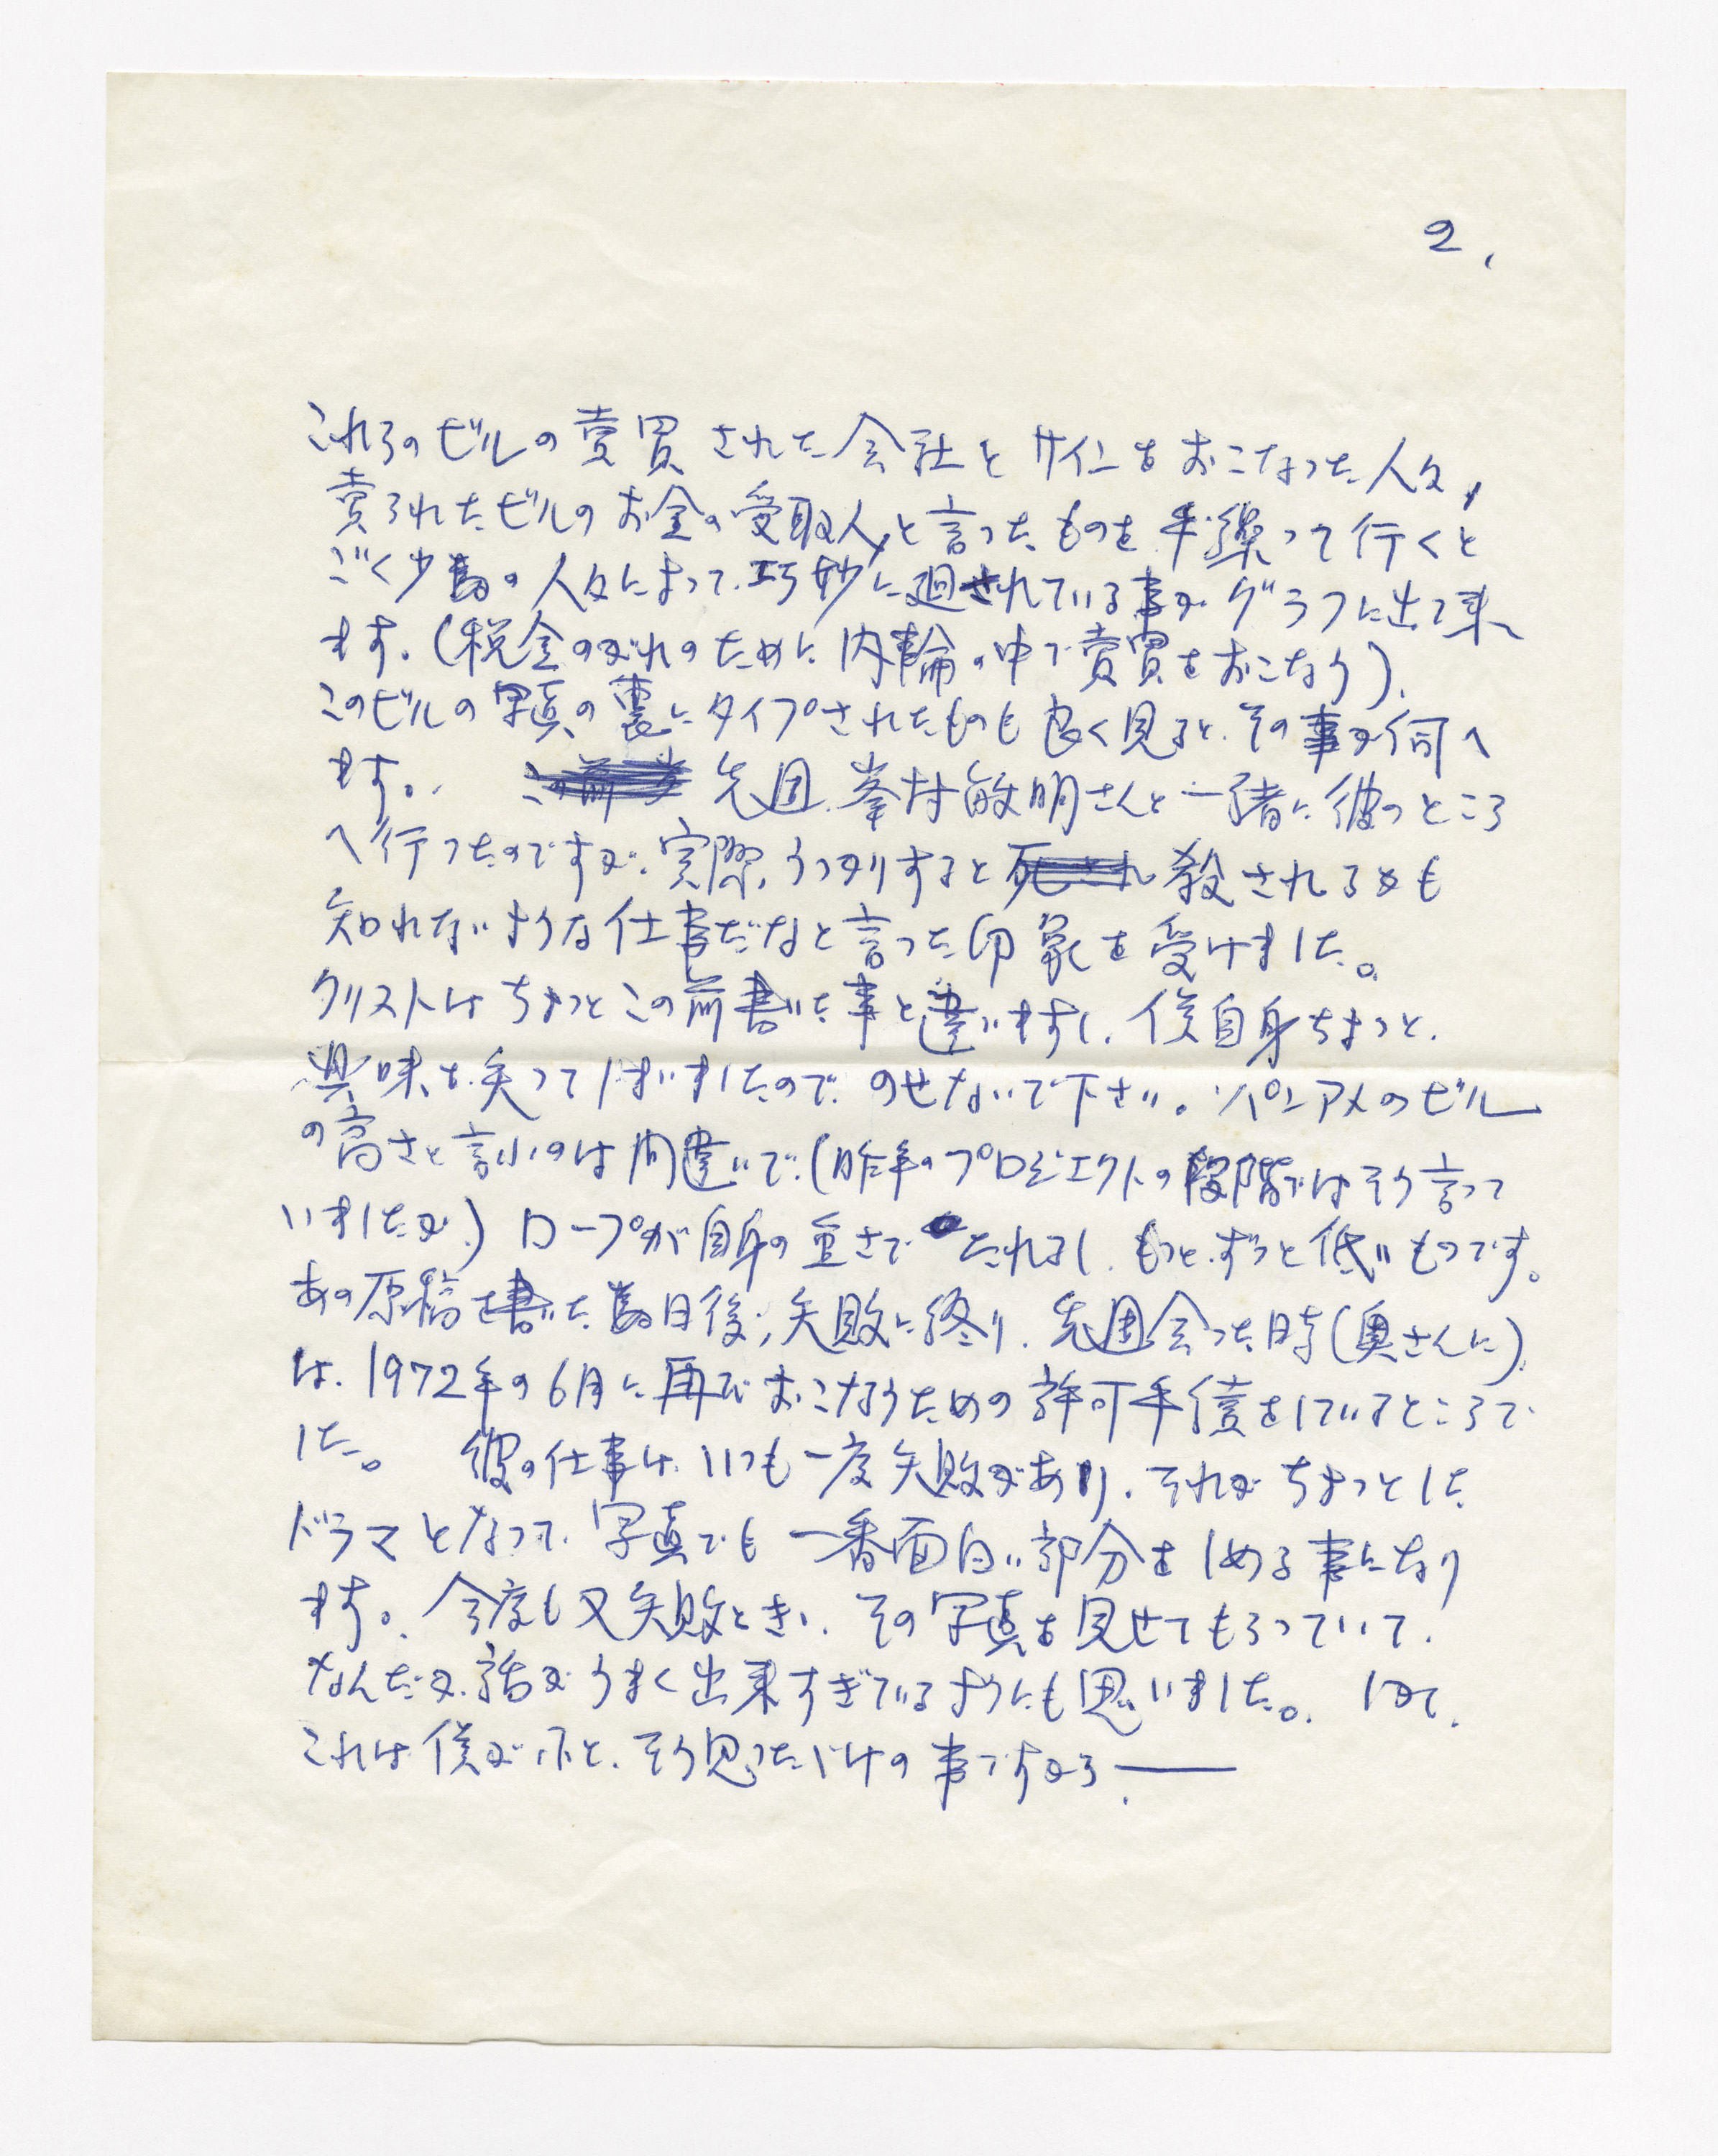 2.
これらのビルの売買された会社とサインをおこなった人々,
売られたビルのお金の受取人と言ったものを手繰って行くと
ごく少数の人々によって、巧妙に廻されている事が、グラフに出て来
ます。(税金のがれのために内輪の中で売買をおこなう)。
このビルの写真の裏にタイプされたものも良く見ると、その事が伺へ
ます。 先週、峯村敏明さんと一緒に彼のところ
へ行ったのですが、実際、うっかりすると 殺されるかも
知れないような仕事だなと言った印象を受けました。
クリストはちょっとこの前書いた事と違いますし、僕自身ちょっと、
興味を失ってしまいましたので、のせないで下さい。パンアメのビル
の高さと言いのは間違いで、(昨年のプロジェクトの段階ではそう言って
いましたが、)ロープが自身の重さで たれるし、もっと、ずっと低いものです。
あの原稿を書いた数日後、失敗に終り、先週会った時(奥さんに)
は、1972年の6月に再びおこなうための許可手続をしているところで
した。 彼の仕事は、いつも一度失敗があり、それがちょっとした
ドラマとなって、写真でも一番面白い部分をしめる事になり
ます。今度も又失敗ときい、その写真を見せてもらっていて、
なんだか、話がうまく出来すぎているようにも思いました。しかし、
これは僕がふと、そう思っただけの事ですから、——